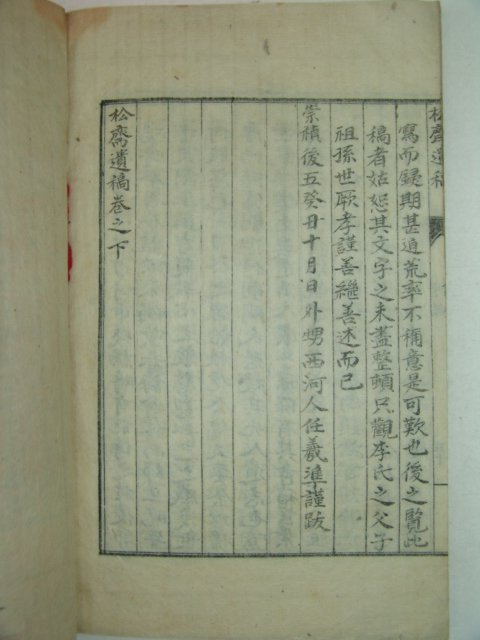 松齋遺稿
寫而錄期甚迫荒率不稱意是可歎也後之覽此
稿者姑恕其文字之未盡整頓只觀李氏之父子
祖孫世厥孝謹善繼善述而已
崇禎後五癸丑十月日外甥西河人任羲準謹跋
松齋遺稿卷之下